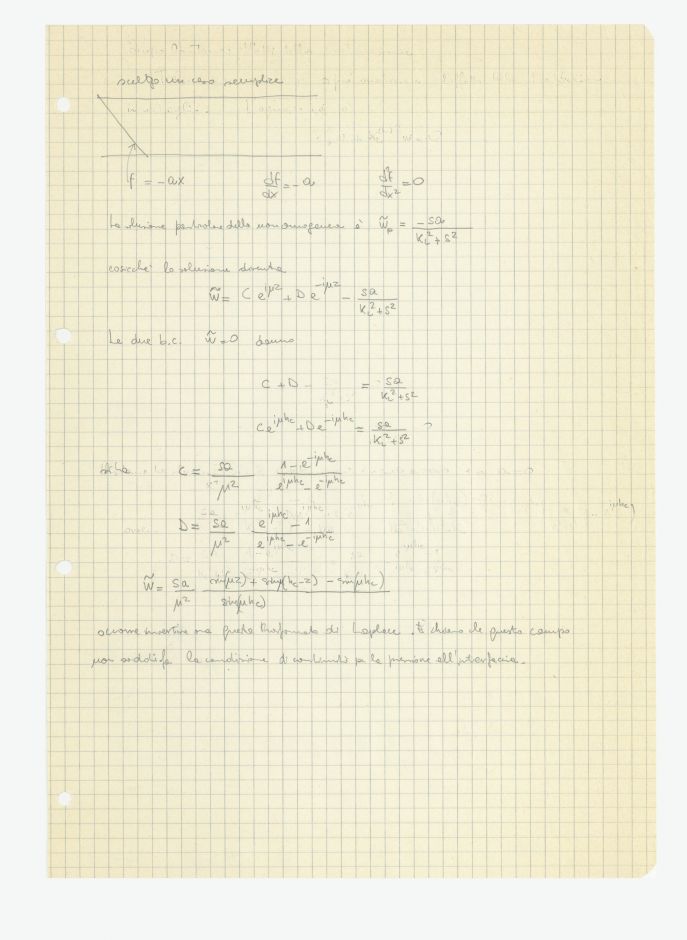 scelgo un caso semplice
f = -ax    df/dx = -a    d²f/dx² = 0
La soluzione particolare della non omogenea è w̃ₚ = -sa/(K_L² + s²)
cosicché la soluzione diventa
w̃ = C e^{iμz} + D e^{-iμz} - sa/(K_L² + s²)
Le due b.c. w̃ = 0 danno
C + D = sa/(K_L² + s²)
C e^{iμh_c} + D e^{-iμh_c} = sa/(K_L² + s²)
C = sa/μ² (1 - e^{-iμh_c})/(e^{iμh_c} - e^{-iμh_c})
D = sa/μ² (e^{iμh_c} - 1)/(e^{iμh_c} - e^{-iμh_c})
w̃ = sa/μ² (sin(μz) + sin μ(h_c - z) - sin(μh_c))/sin(μh_c)
occorre invertire ora questa trasformata di Laplace. È chiaro che questo campo
non soddisfa la condizione di continuità per la pressione all'interfaccia.